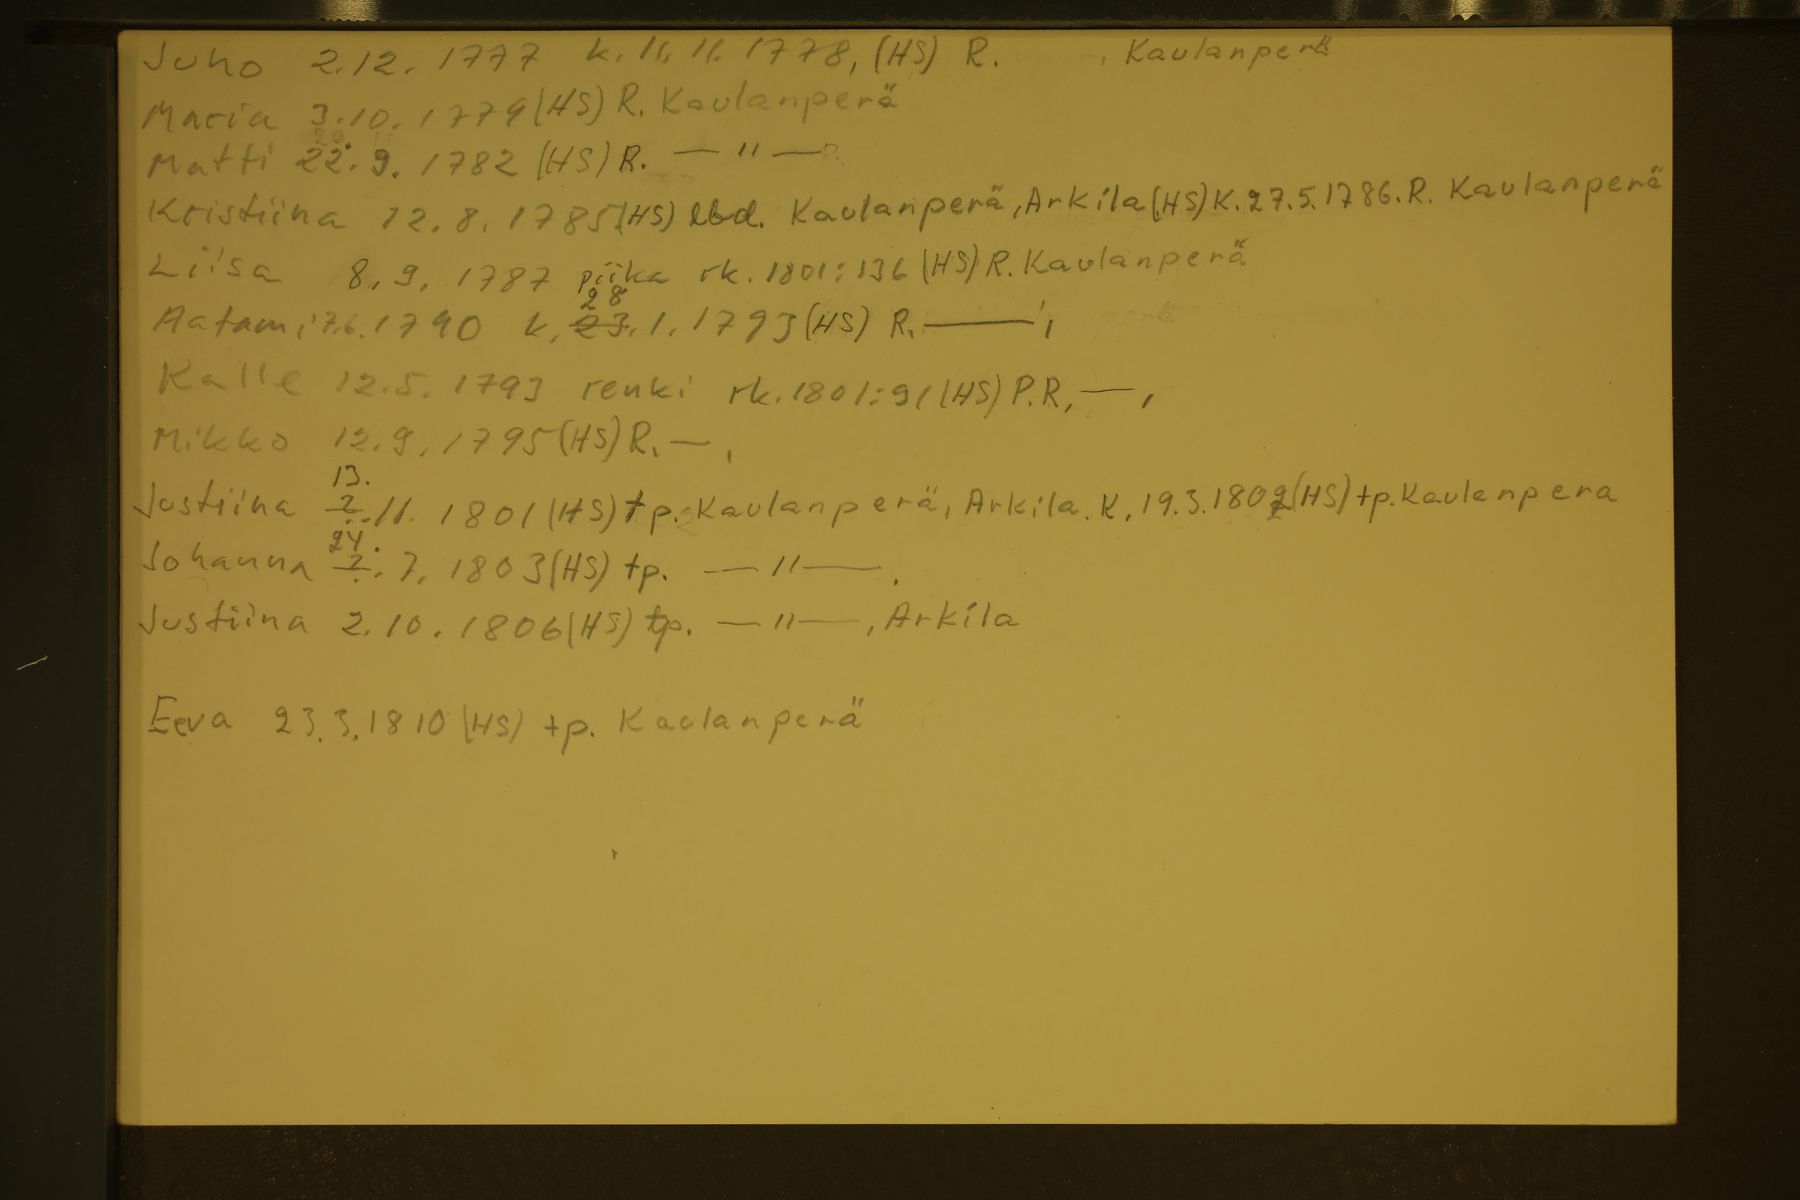 Juho 2.12. 1777 k. 11. 11. 1778, (HS) R. , Kaulanperä
Maria 3.10. 1779 (HS) R. Kaulanperä
Matti 22. 9. 1782 (HS) R. — " —
Kristiina 12. 8. 1785 (HS) lbd. Kaulanperä, Arkila (HS) K. 27.5.1786. R. Kaulanperä
Liisa 8. 9. 1787 piika rk. 1801:136 (HS) R. Kaulanperä
28
Aatami 7.6. 1790 k. 23. 1. 1793 (HS) R. ——,
Kalle 12.5. 1793 renki rk. 1801:91 (HS) P.R. —,
Mikko 12.9. 1795 (HS) R. —,
13.
Justiina ?. 11. 1801 (HS) tp. Kaulanperä, Arkila. K. 19.3.1802 (HS) tp. Kaulanpera
24.
Johanna ?. 7. 1803 (HS) tp. — " —.
Justiina 2. 10. 1806 (HS) tp. — " —, Arkila
Eeva 23.3.1810 (HS) tp. Kaulanperä